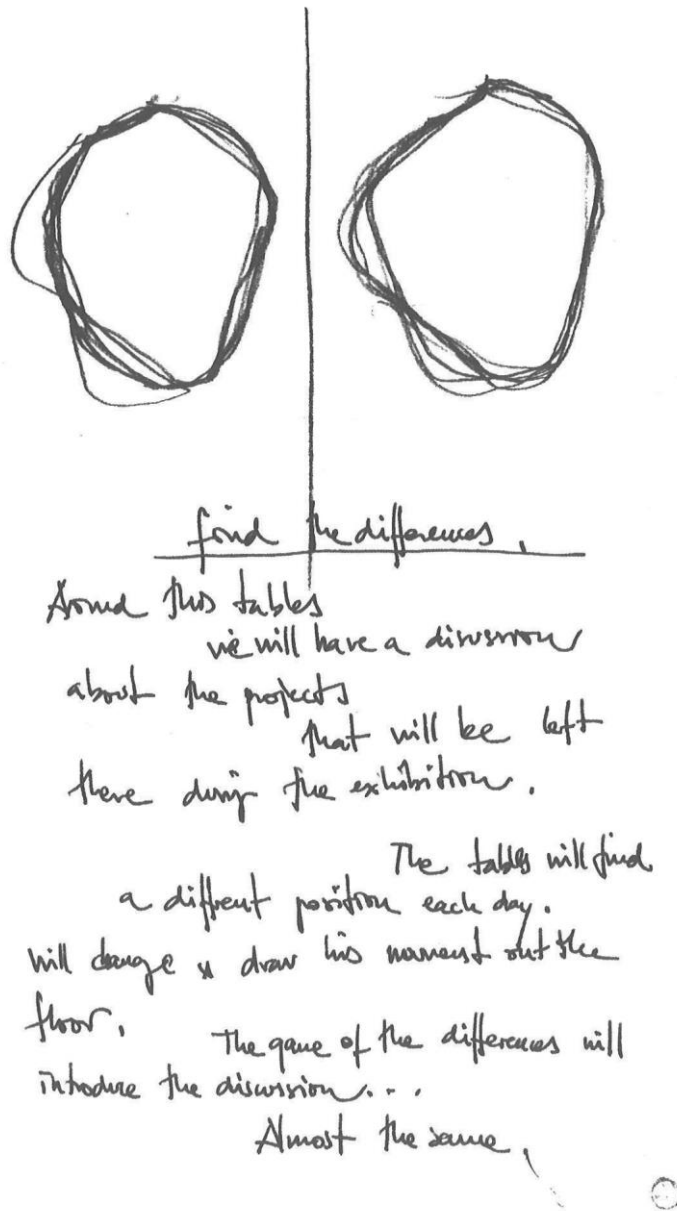 find the differences.
Around this tables
we will have a discussion
about the projects
that will be left
there during the exhibition.
The tables will find
a diffrent position each day.
will change & draw his movement out the
floor.
The game of the differences will
introduce the discussion...
Almost the same,